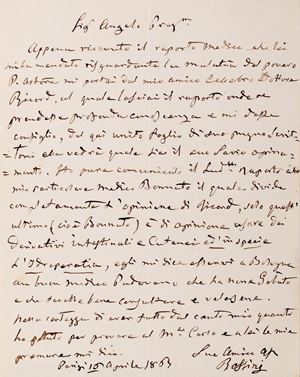 Sigr Angelo Pregmo
Appena ricevuto il rapporto Medico che lei
mi ha mandato risguardante la malattia del povero
P. Astore mi portai dal mio amico Celebre Dottore
Ricord, al quale lasciai il rapporto onde ne
prendesse profonda conoscenza e mi desse
consiglio, dal qui unito foglio di suo pugno scrit=
=to ella vedrà quale sia il suo Savio opina=
=mento. Ho pure comunicato il sudto Rapporto al
mio particolare medico Bonnuto il quale divide
completamente l'opinione di Ricord, solo quest'
ultimo (cioè Bonnuto) è di opinione usare dei
derivativi intestinali e Cutanei ed in specie
L'Idroperatia, egli mi dice esservi a Bologna
un buon medico Padovano che ha nome
e che sarebbe bene consultare
nella certezza di aver fatto dal canto mio quanto
ho potuto per provare al Mo Carlo e a lei la mia
premura mi dico.
Suo Amico
Parigi 15 Aprile 1863